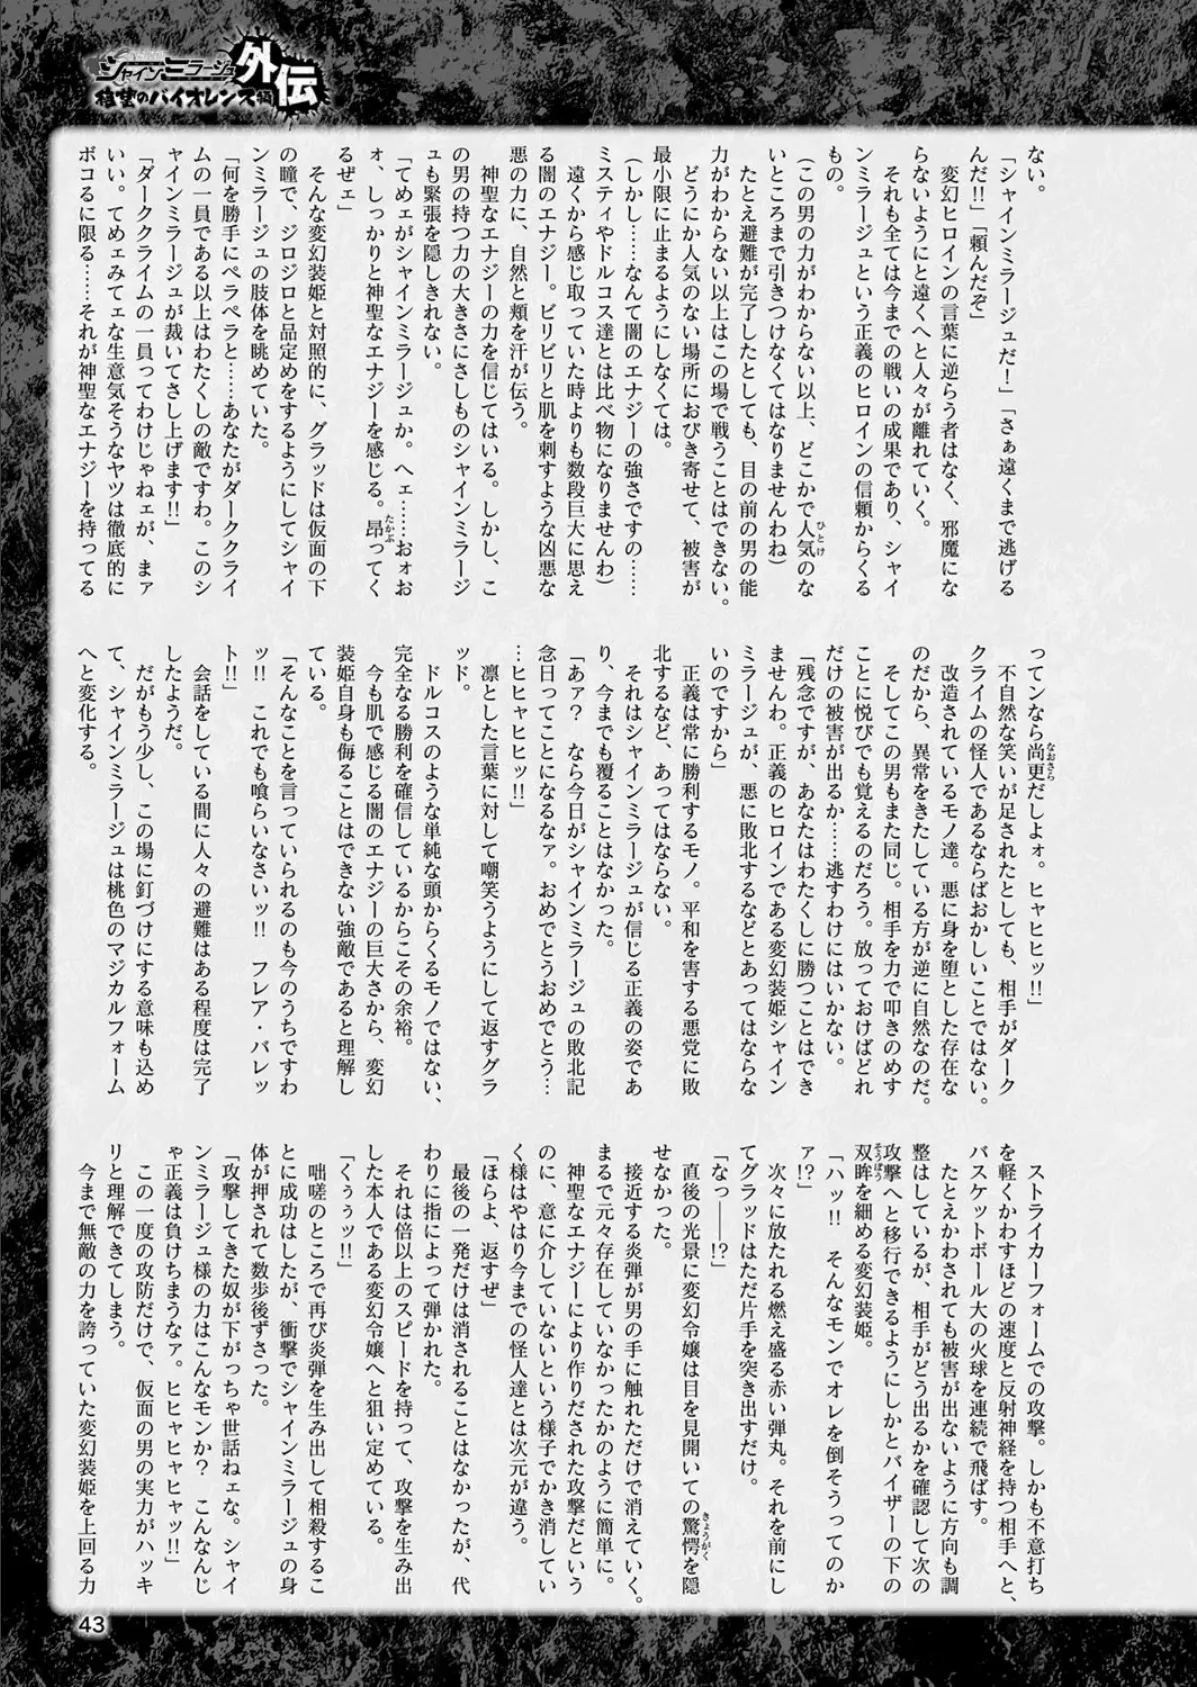 シャインミラージュ
外伝
待望のバイオレンス編
ない。
「シャインミラージュだ！」「さぁ遠くまで逃げる
んだ!!」「頼んだぞ」
変幻ヒロインの言葉に逆らう者はなく、邪魔にな
らないようにと遠くへと人々が離れていく。
それも全ては今までの戦いの成果であり、シャイ
ンミラージュという正義のヒロインの信頼からくる
もの。
（この男の力がわからない以上、どこかで人気のな
いところまで引きつけなくてはなりませんわね）
たとえ避難が完了したとしても、目の前の男の能
力がわからない以上はこの場で戦うことはできない。
どうにか人気のない場所におびき寄せて、被害が
最小限に止まるようにしなくては。
（しかし……なんて闇のエナジーの強さですの……
ミスティやドルコス達とは比べ物になりませんわ）
遠くから感じ取っていた時よりも数段巨大に思え
る闇のエナジー。ビリビリと肌を刺すような凶悪な
悪の力に、自然と頬を汗が伝う。
神聖なエナジーの力を信じてはいる。しかし、こ
の男の持つ力の大きさにさしものシャインミラージ
ュも緊張を隠しきれない。
「てめェがシャインミラージュか。へェ……おォお
ォ、しっかりと神聖なエナジーを感じる。昂ってく
るぜェ」
そんな変幻装姫と対照的に、グラッドは仮面の下
の瞳で、ジロジロと品定めをするようにしてシャイ
ンミラージュの肢体を眺めていた。
「何を勝手にペラペラと……あなたがダーククライ
ムの一員である以上はわたくしの敵ですわ。このシ
ャインミラージュが裁いてさし上げます!!」
「ダーククライムの一員ってわけじゃねェが、まァ
いい。てめェみてェな生意気そうなヤツは徹底的に
ボコるに限る……それが神聖なエナジーを持ってる
ってンなら尚更だしよォ。ヒャヒヒッ!!」
不自然な笑いが足されたとしても、相手がダーク
クライムの怪人であるならばおかしいことではない。
改造されているモノ達。悪に身を堕とした存在な
のだから、異常をきたしている方が逆に自然なのだ。
そしてこの男もまた同じ。相手を力で叩きのめす
ことに悦びでも覚えるのだろう。放っておけばどれ
だけの被害が出るか……逃すわけにはいかない。
「残念ですが、あなたはわたくしに勝つことはでき
ませんわ。正義のヒロインである変幻装姫シャイン
ミラージュが、悪に敗北するなどとあってはならな
いのですから」
正義は常に勝利するモノ。平和を害する悪党に敗
北するなど、あってはならない。
それはシャインミラージュが信じる正義の姿であ
り、今までも覆ることはなかった。
「あァ？　なら今日がシャインミラージュの敗北記
念日ってことになるなァ。おめでとうおめでとう…
…ヒヒャヒヒッ!!」
凛とした言葉に対して嘲笑うようにして返すグラ
ッド。
ドルコスのような単純な頭からくるモノではない、
完全なる勝利を確信しているからこその余裕。
今も肌で感じる闇のエナジーの巨大さから、変幻
装姫自身も侮ることはできない強敵であると理解し
ている。
「そんなことを言っていられるのも今のうちですわ
ッ!!　これでも喰らいなさいッ!!　フレア・バレッ
ト!!」
会話をしている間に人々の避難はある程度は完了
したようだ。
だがもう少し、この場に釘づけにする意味も込め
て、シャインミラージュは桃色のマジカルフォーム
へと変化する。
ストライカーフォームでの攻撃。しかも不意打ち
を軽くかわすほどの速度と反射神経を持つ相手へと、
バスケットボール大の火球を連続で飛ばす。
たとえかわされても被害が出ないように方向も調
整はしているが、相手がどう出るかを確認して次の
攻撃へと移行できるようにしかとバイザーの下の
双眸を細める変幻装姫。
「ハッ!!　そんなモンでオレを倒そうってのか
ァ!?」
次々に放たれる燃え盛る赤い弾丸。それを前にし
てグラッドはただ片手を突き出すだけ。
「なっ――!?」
直後の光景に変幻令嬢は目を見開いての驚愕を隠
せなかった。
接近する炎弾が男の手に触れただけで消えていく。
まるで元々存在していなかったかのように簡単に。
神聖なエナジーにより作りだされた攻撃だという
のに、意に介していないという様子でかき消してい
く様はやはり今までの怪人達とは次元が違う。
「ほらよ、返すぜ」
最後の一発だけは消されることはなかったが、代
わりに指によって弾かれた。
それは倍以上のスピードを持って、攻撃を生み出
した本人である変幻令嬢へと狙い定めている。
「くぅぅッ!!」
咄嗟のところで再び炎弾を生み出して相殺するこ
とに成功はしたが、衝撃でシャインミラージュの身
体が押されて数歩後ずさった。
「攻撃してきた奴が下がっちゃ世話ねェな。シャイ
ンミラージュ様の力はこんなモンか？　こんなんじ
ゃ正義は負けちまうなァ。ヒヒャヒャヒャッ!!」
この一度の攻防だけで、仮面の男の実力がハッキ
リと理解できてしまう。
今まで無敵の力を誇っていた変幻装姫を上回る力
43